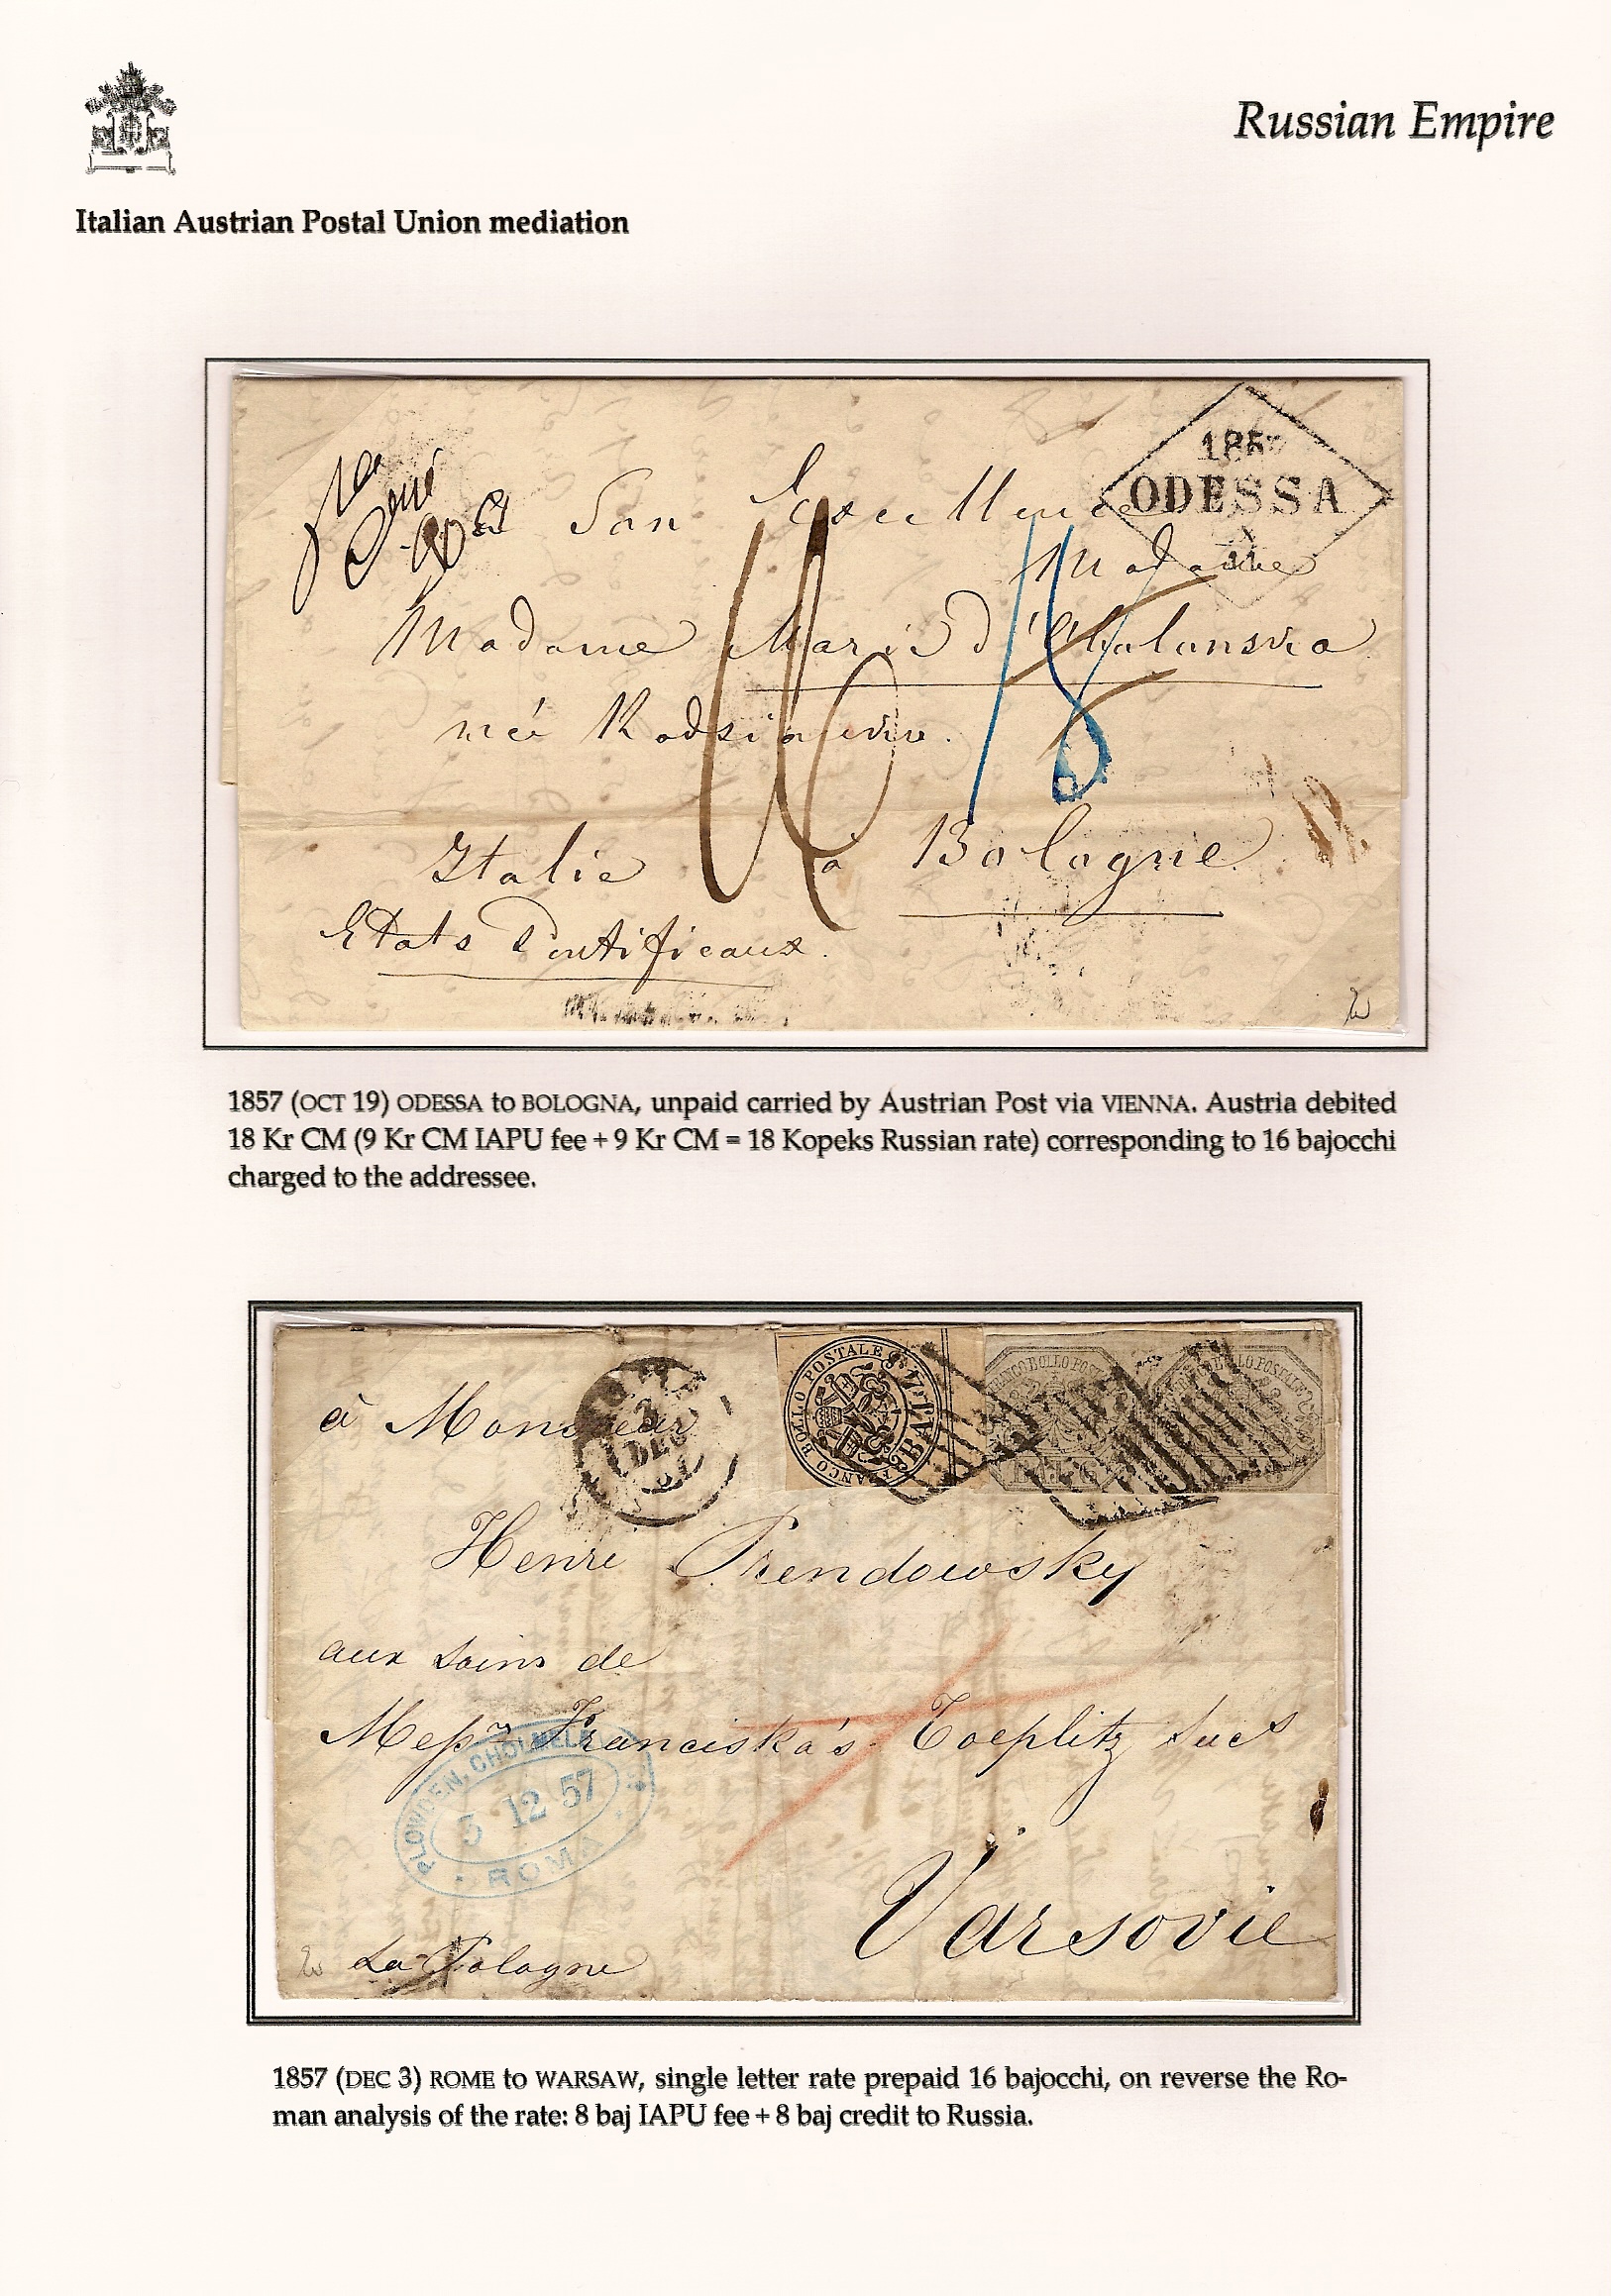 Russian Empire
Italian Austrian Postal Union mediation
185
ODESSA
X
à Son Excellence
Madame
Madame Marie d'
née
18
16
Italie à Bologne
Etats Pontificaux.
1857 (OCT 19) ODESSA to BOLOGNA, unpaid carried by Austrian Post via VIENNA. Austria debited
18 Kr CM (9 Kr CM IAPU fee + 9 Kr CM = 18 Kopeks Russian rate) corresponding to 16 bajocchi
charged to the addressee.
FRANCO BOLLO POSTALE
BAJ
FRANCO BOLLO POSTALE
BOLLO POSTALE
DEC
à Monsieur
Henri Prendowsky
aux soins de
Messrs Franciska's Toeplitz Suc
PLOWDEN, CHOLMELE
3 12 57
ROMA
Varsovie
La Pologne
1857 (DEC 3) ROME to WARSAW, single letter rate prepaid 16 bajocchi, on reverse the Ro-
man analysis of the rate: 8 baj IAPU fee + 8 baj credit to Russia.